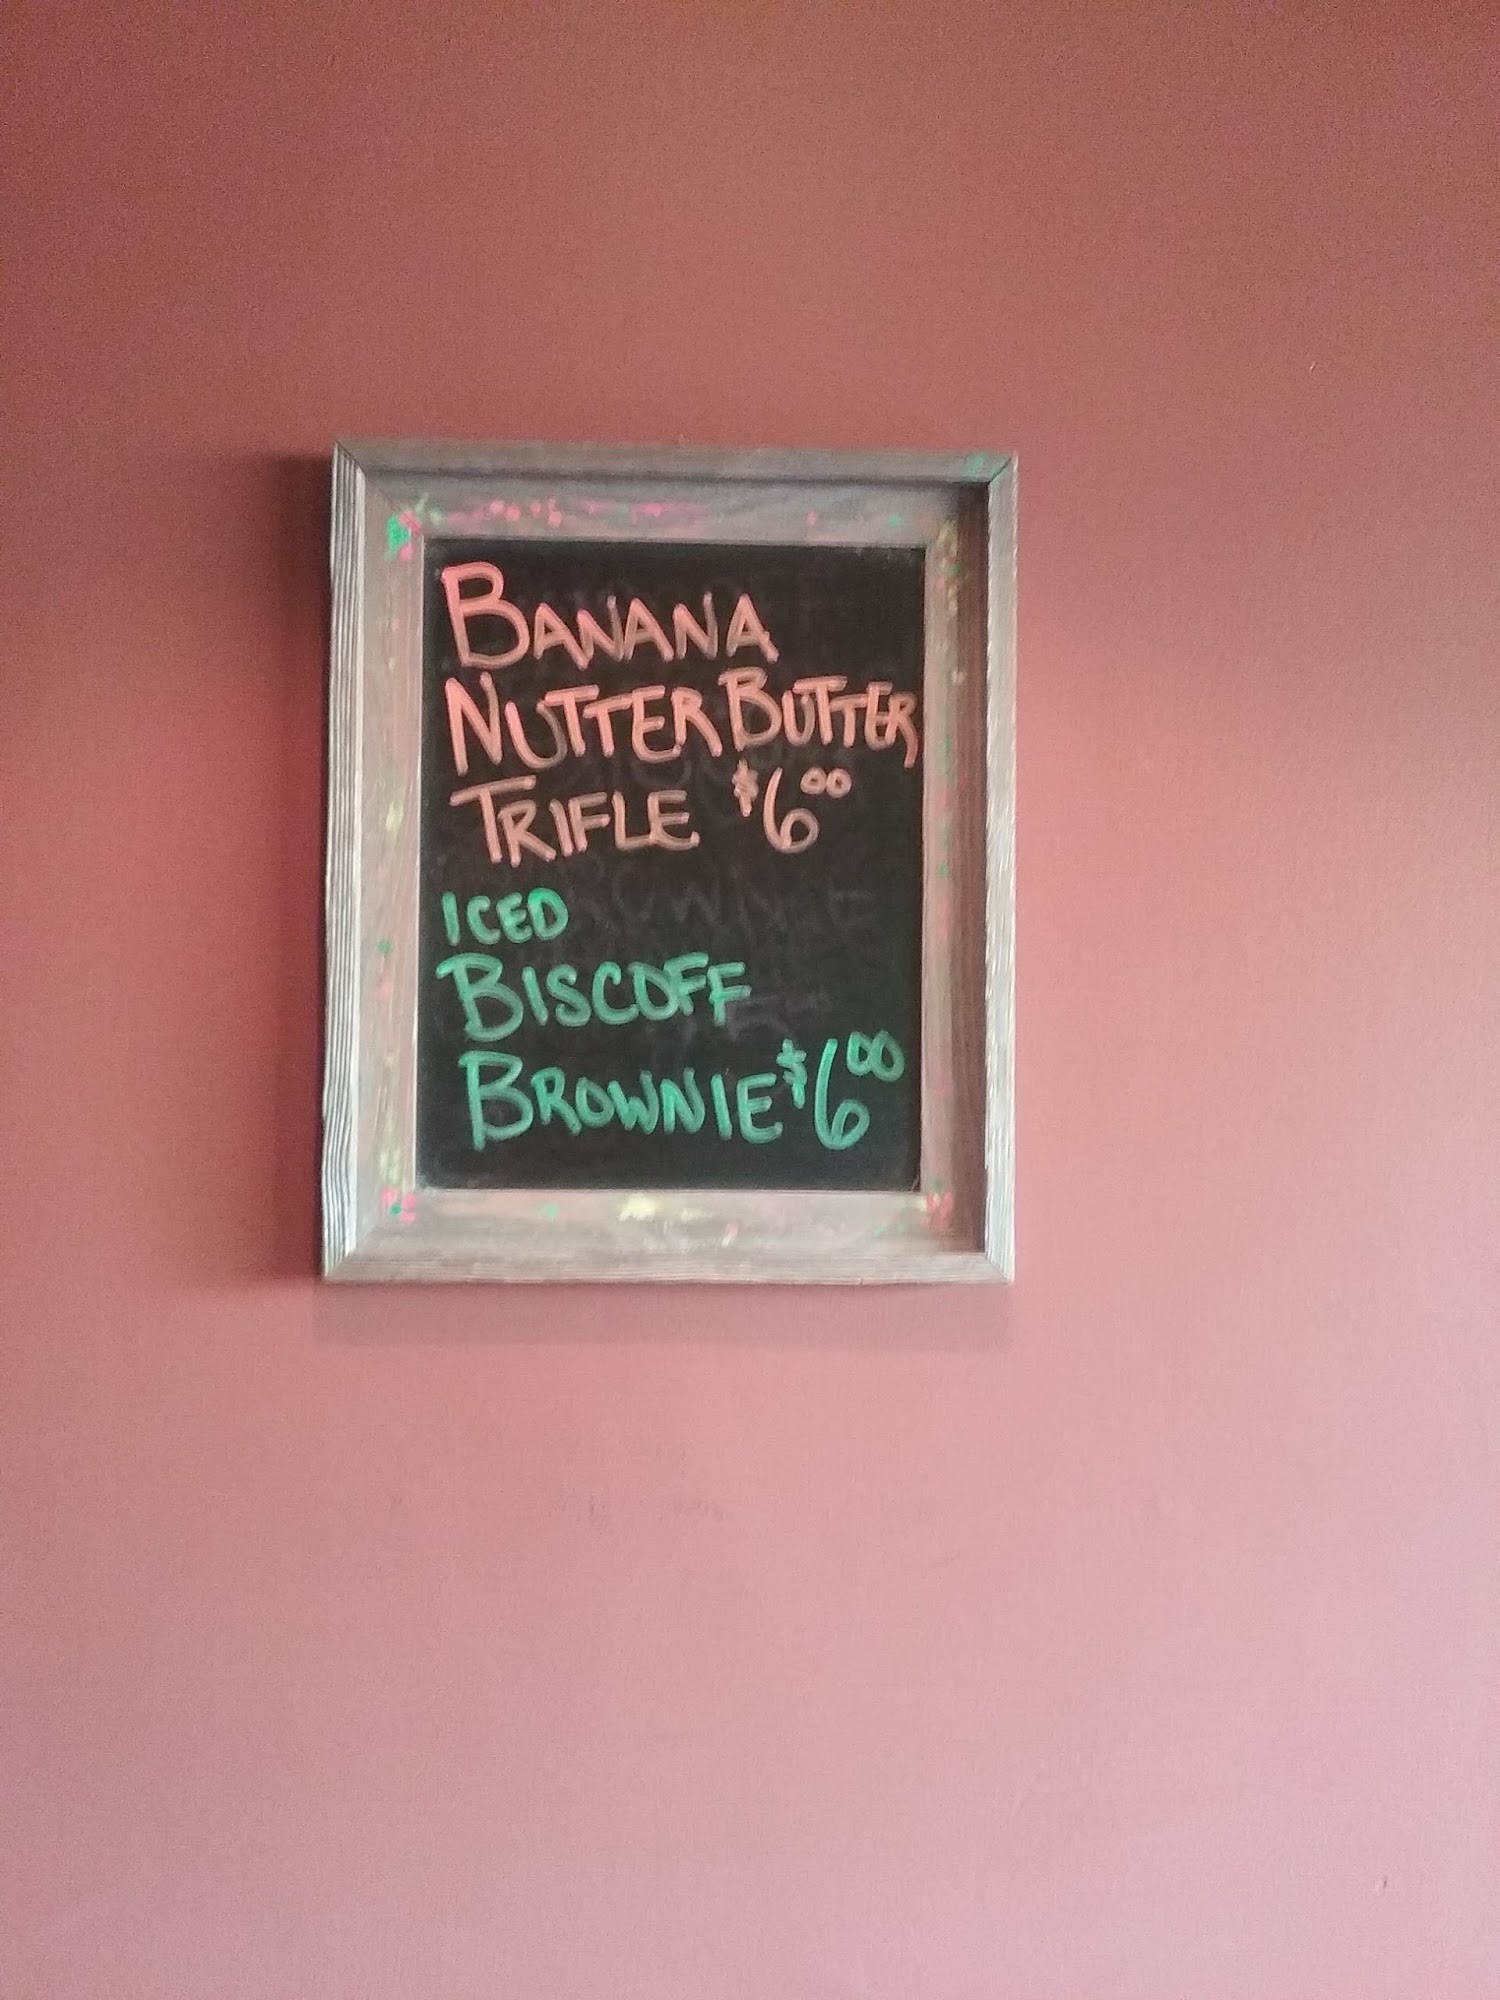 BANANA
NUTTER BUTTER
TRIFLE $6.00
ICED
BISCOFF
BROWNIE $6.00